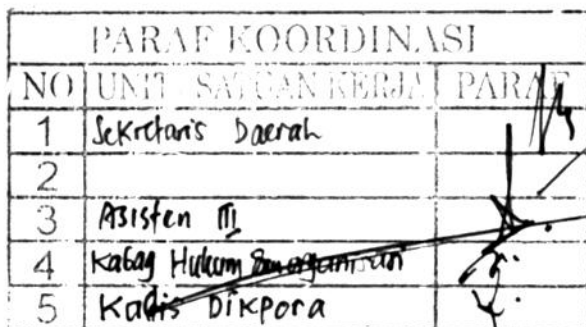 PARAF KOORDINASI
NO UNIT SATUAN KERJA PARAF
1 Sekretaris Daerah
2
3 Asisten III
4 Kabag Hukum
5 Kadis Dikpora